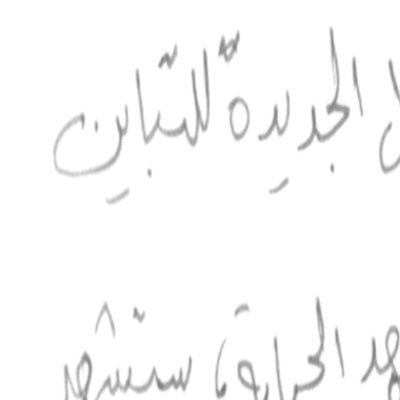 الجديدة للتباين
الحرارة، ستشهد